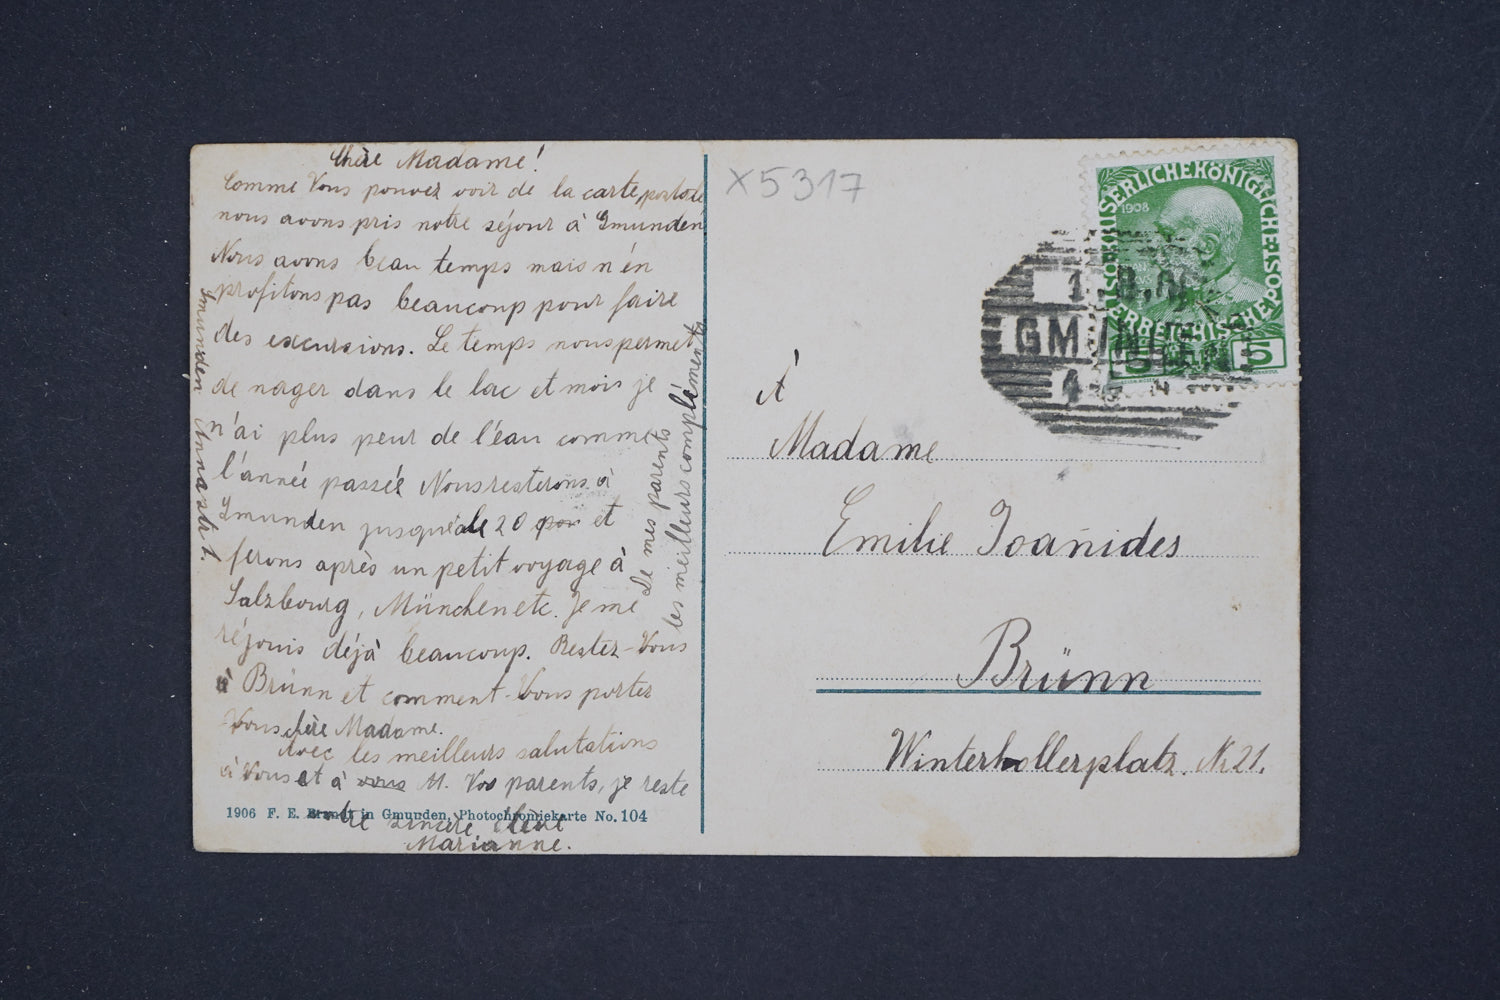 Chère Madame!
Comme Vous pouvez voir de la carte postale
nous avons pris notre séjour à Gmunden
Nous avons beau temps mais n'én
profitons pas beaucoup pour faire
des excursions. Le temps nous permet
de nager dans le lac et mois je
n'ai plus peur de l'éau comme
l'année passée Nous resterons à
Gmunden jusqu'à le 20 et
ferons aprés un petit voyage à
Salzbourg, München etc. Je me
réjouis déjà beaucoup. Restez-Vous
à Brünn et comment-Vous portez
Vous chère Madame.
Avec les meilleurs salutations
à Vous et à M. Vos parents, je reste
votre sincère élève
Marianne.
De mes parents
les meilleurs compléments
Gmunden Annastr 1.
1906 F. E. Brandt in Gmunden, Photochromiekarte No. 104
X5317
KAISERLICHE KÖNIGLICHE POST
ÖSTERREICHISCHE
1908
5
GMUNDEN
À
Madame
Emilie Joanides
Brünn
Winterhollerplatz. N 21.